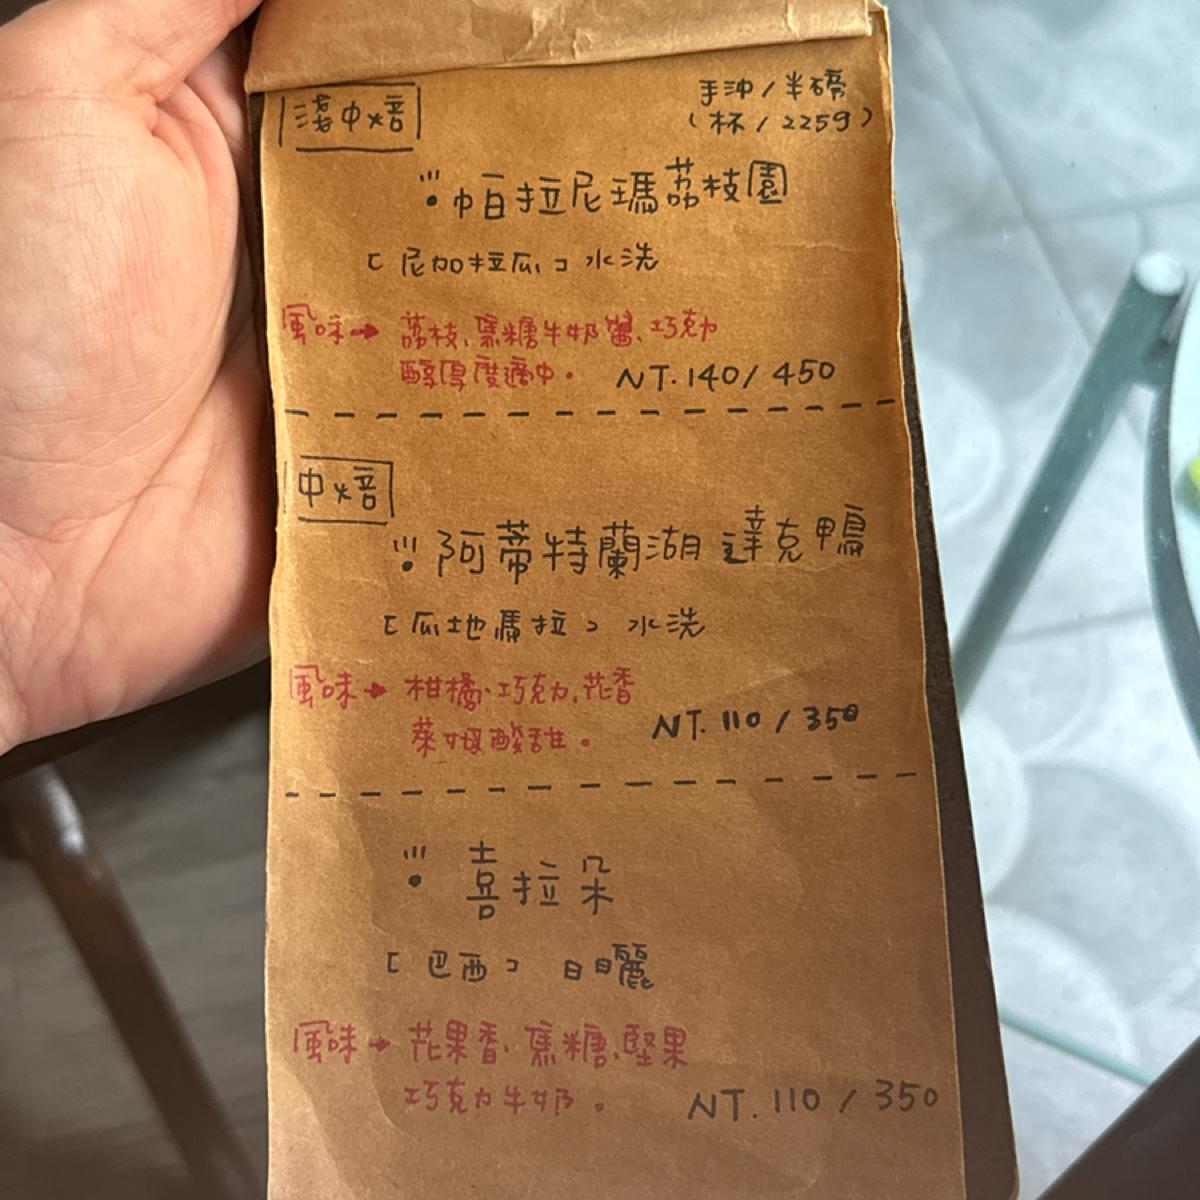 淺中焙
手沖/半磅
(杯/225g)
帕拉尼瑪荔枝園
[尼加拉瓜] 水洗
風味→ 荔枝、焦糖牛奶醬、巧克力
醇厚度適中。 NT.140/450
中焙
阿蒂特蘭湖 達克鴨
[瓜地馬拉] 水洗
風味→ 柑橘、巧克力、花香
萊姆酸甜。 NT.110/350
喜拉朵
[巴西] 日曬
風味→ 花果香、焦糖、堅果
巧克力牛奶。 NT.110/350